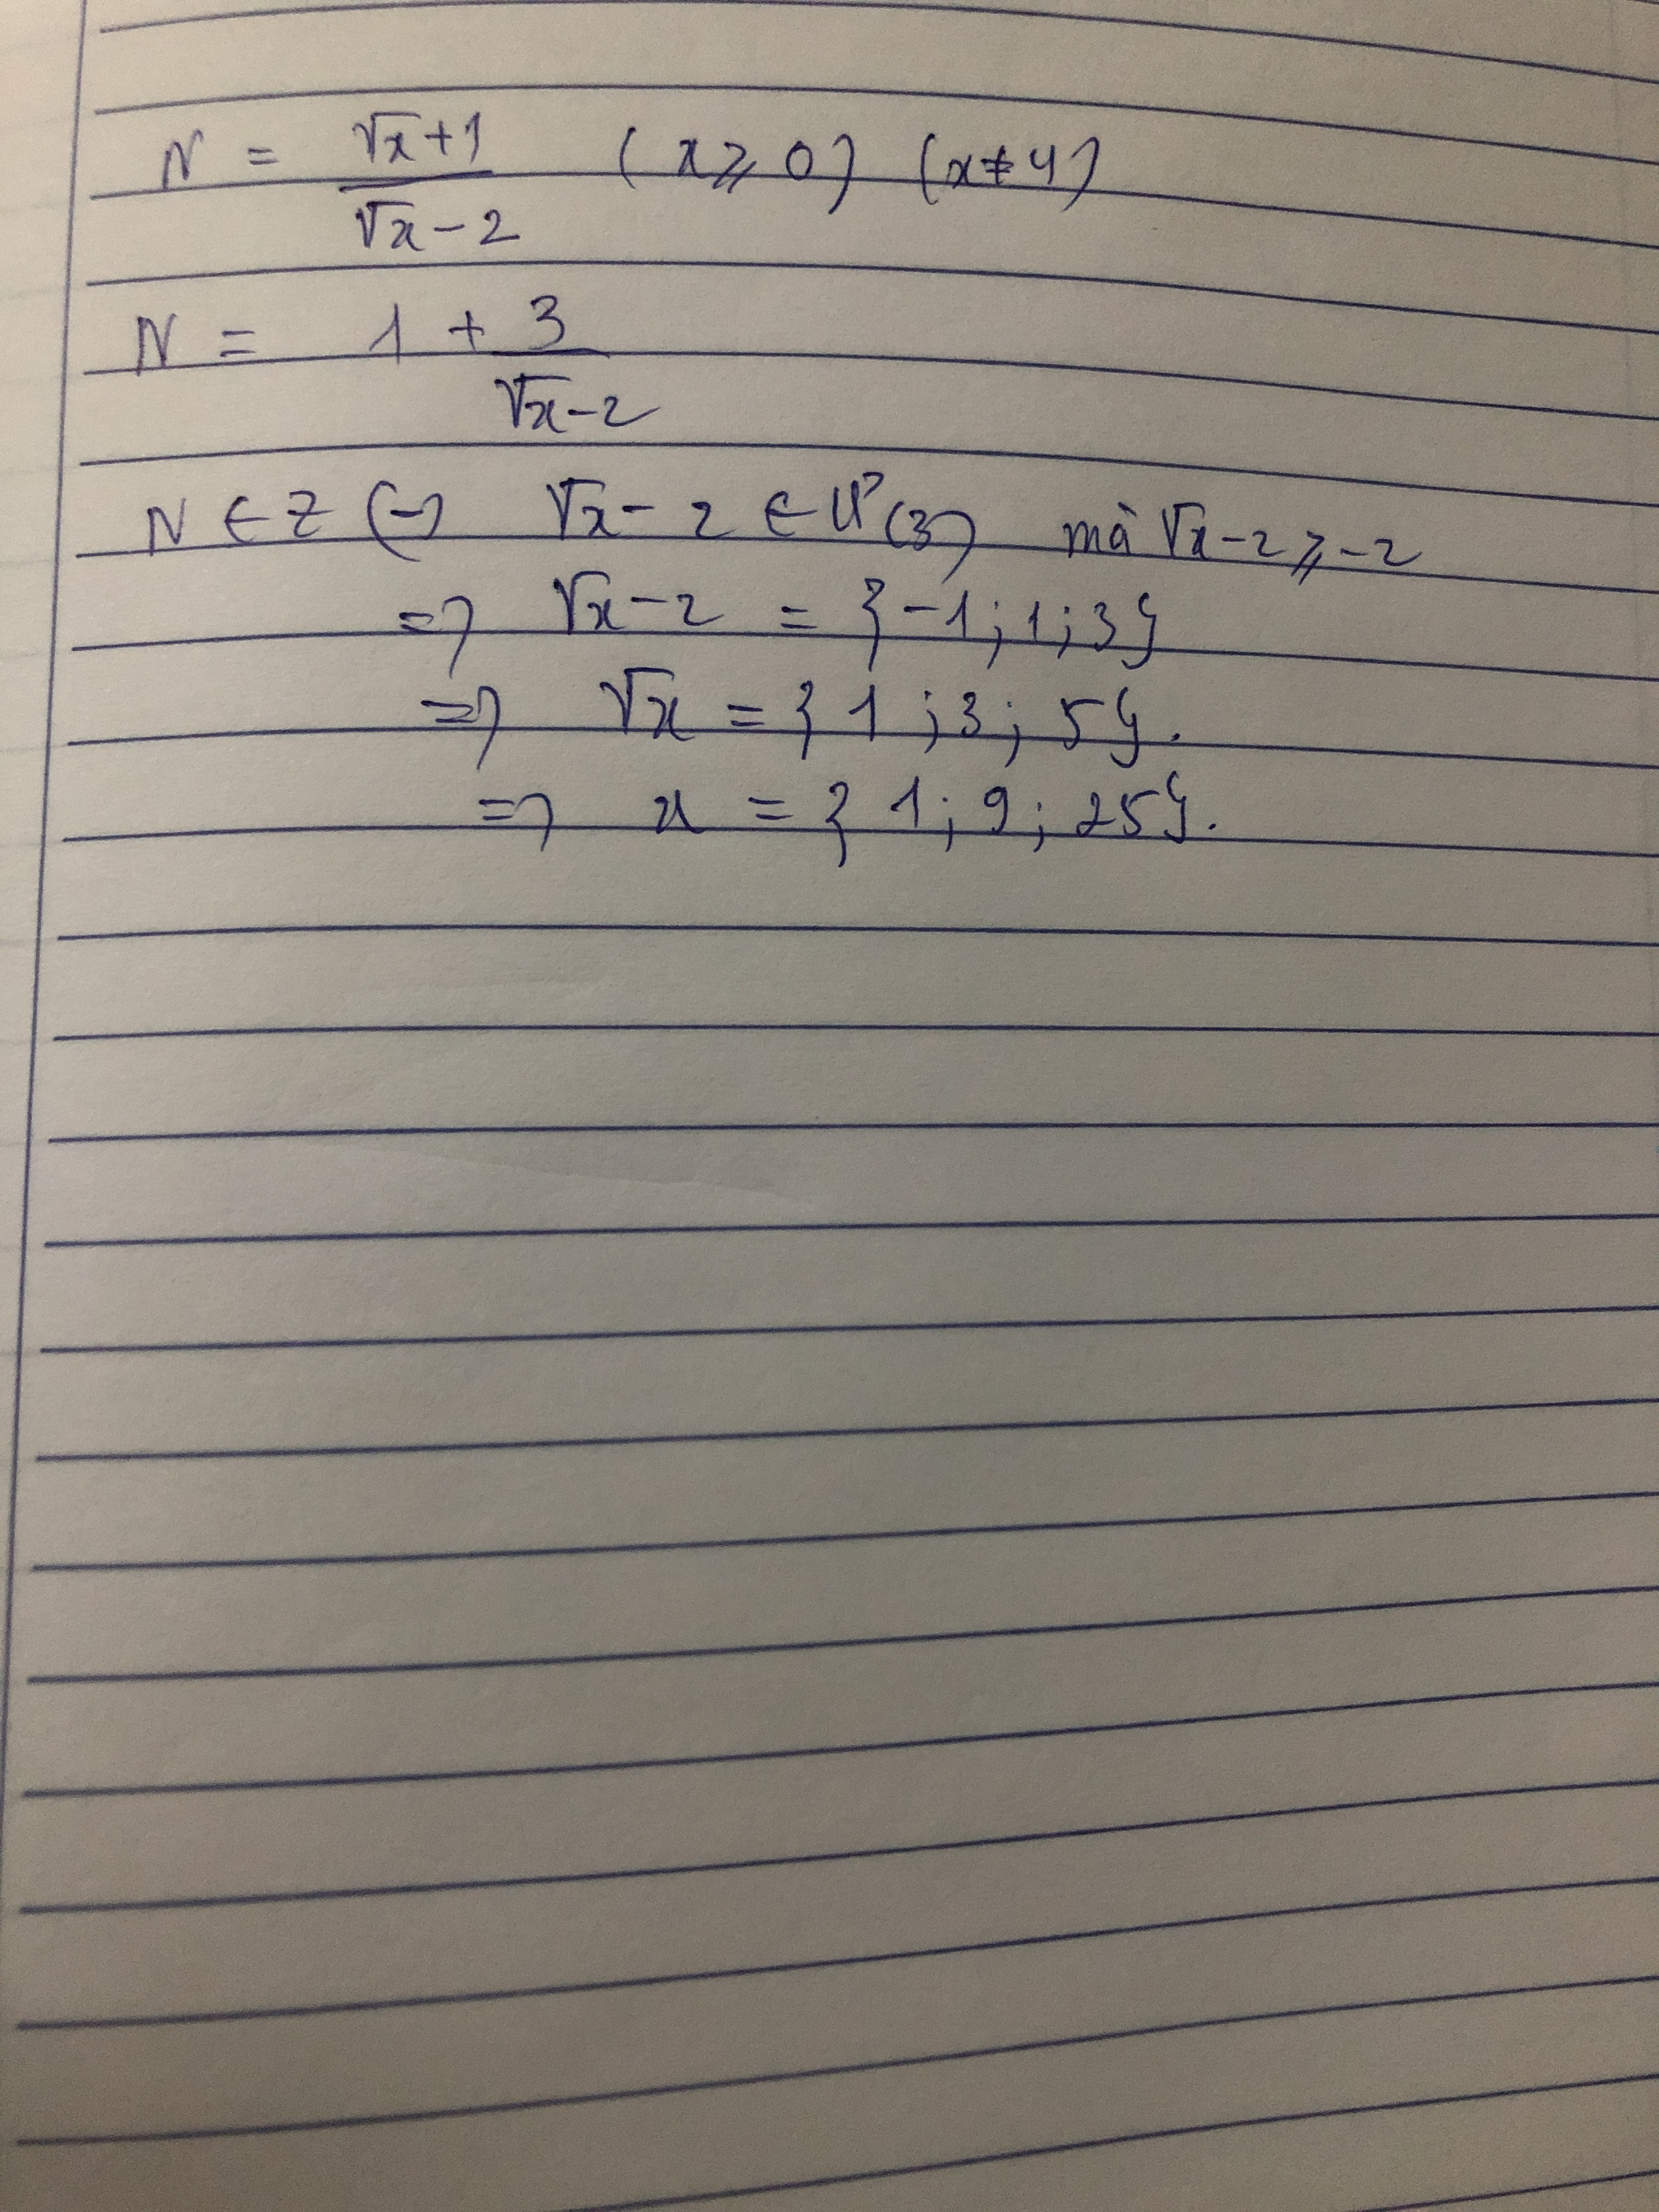 N = √x+1 / √x-2 (x ≥ 0) (x ≠ 4)
N = 1 + 3 / √x-2
N ∈ Z (-) √x - 2 ∈ Ư(3) mà √x-2 ≥ -2
=> √x-2 = {-1; 1; 3}
=> √x = {1; 3; 5}.
=> x = {1; 9; 25}.